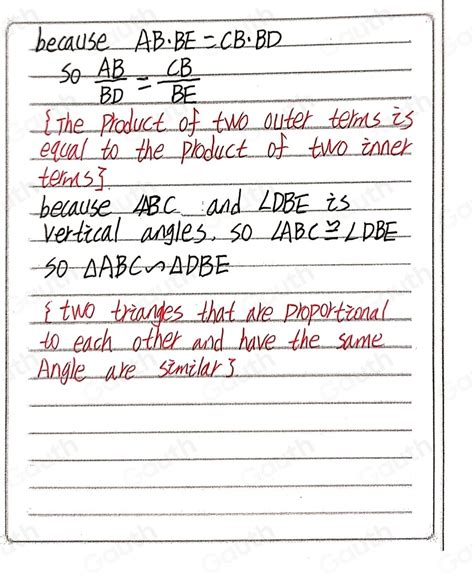 because AB·BE=CB·BD
so AB/BD = CB/BE
{The Product of two outer terms is
equal to the product of two inner
terms}
because ∠ABC and ∠DBE is
vertical angles, so ∠ABC≅∠DBE
so △ABC∽△DBE
{two triangles that are proportional
to each other and have the same
Angle are similar}.